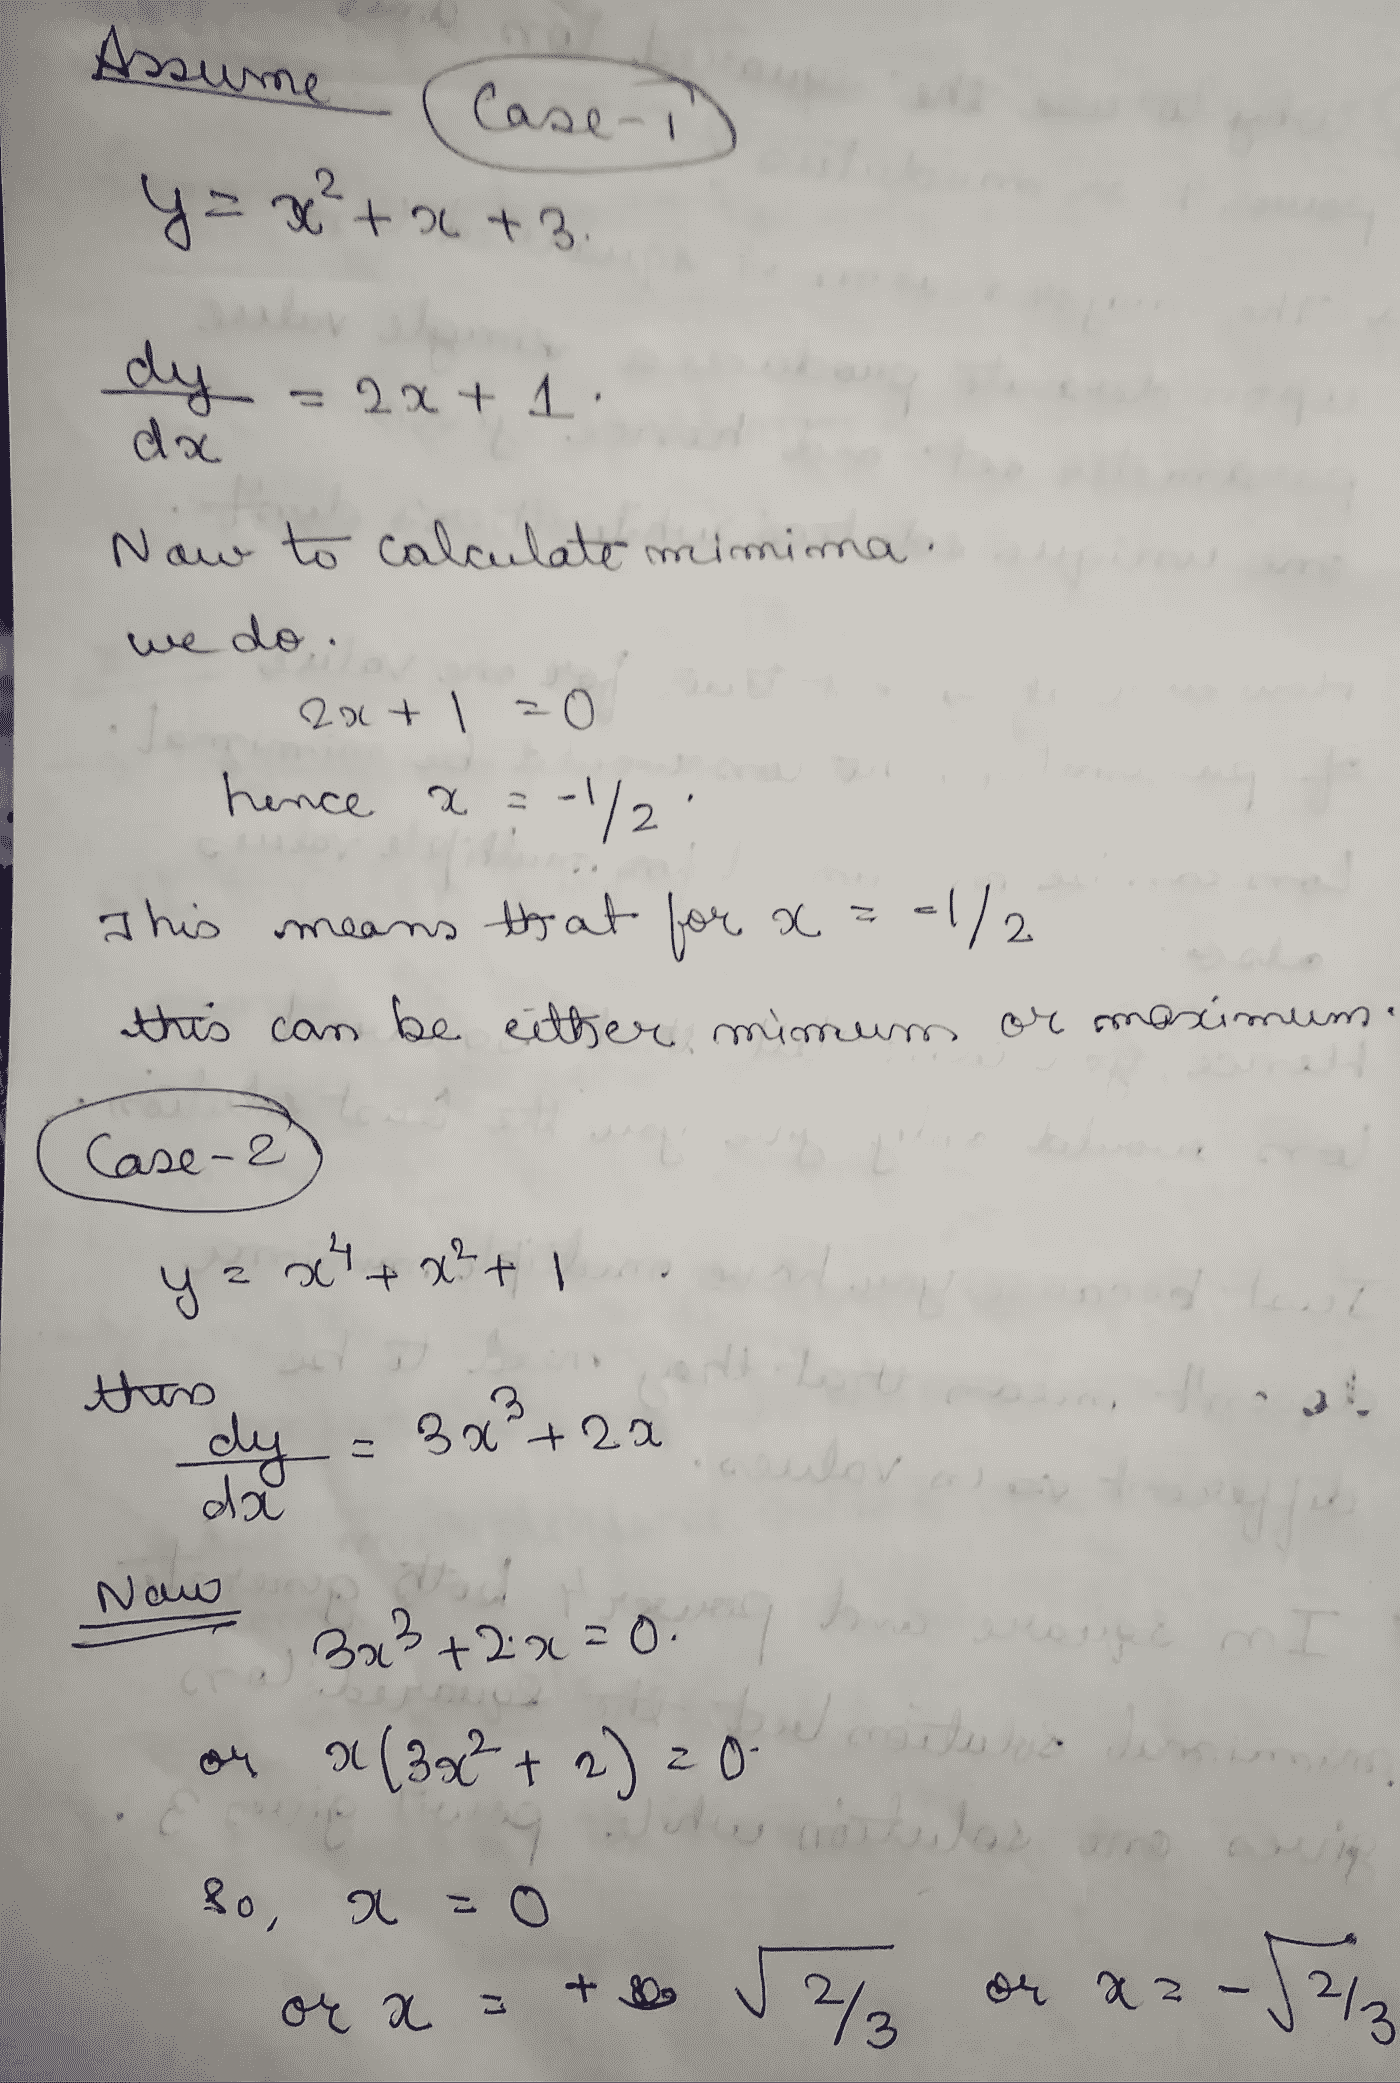 Assume
Case-1
y = x² + x + 3.
dy/dx = 2x + 1.
Now to calculate mimima.
we do.
2x + 1 = 0
hence x = -1/2.
This means that for x = -1/2
this can be either mimum or maximum.
Case-2
y = x⁴ + x² + 1.
thus
dy/dx = 3x³ + 2x
Now
3x³ + 2·x = 0.
or x(3x² + 2) = 0.
So, x = 0
or x = + √2/3 or x = -√2/3